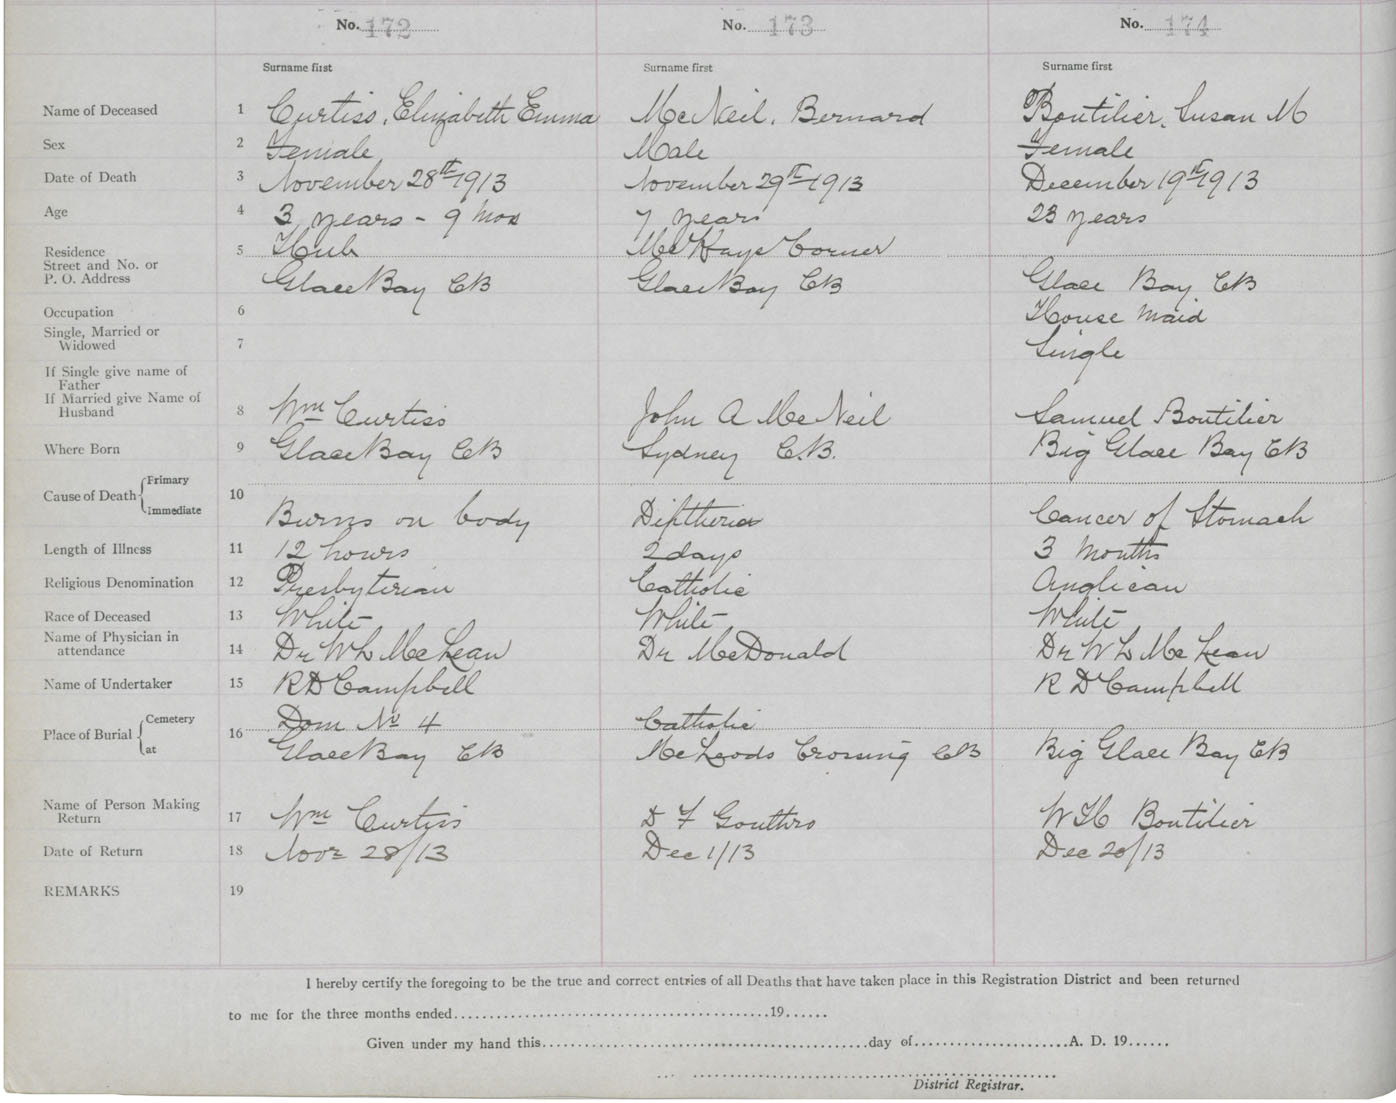 No. 172 No. 173 No. 174
Surname first Surname first Surname first
Name of Deceased 1 Curtiss, Elizabeth Emma McNeil, Bernard Boutilier, Susan M
Sex 2 Female Male Female
Date of Death 3 November 28th 1913 November 29th 1913 December 19th 1913
Age 4 3 years - 9 mos 7 years 23 years
Residence 5 Hub McKays Corner
Street and No. or
P. O. Address Glace Bay CB Glace Bay CB Glace Bay CB
Occupation 6 House Maid
Single, Married or
Widowed 7 Single
If Single give name of
Father
If Married give Name of
Husband 8 Wm Curtiss John A McNeil Samuel Boutilier
Where Born 9 Glace Bay CB Sydney C.B. Big Glace Bay CB
Cause of Death { Primary 10
Immediate Burns on body Diptheria Cancer of Stomach
Length of Illness 11 12 hours 2 days 3 Months
Religious Denomination 12 Presbyterian Catholic Anglican
Race of Deceased 13 White White White
Name of Physician in
attendance 14 Dr W L McLean Dr McDonald Dr W L McLean
Name of Undertaker 15 R D Campbell R D Campbell
Place of Burial { Cemetery 16 Dom No 4 Catholic
at Glace Bay CB McLeods Crossing CB Big Glace Bay CB
Name of Person Making
Return 17 Wm Curtiss D F Gouthro W H Boutilier
Date of Return 18 Novr 28/13 Dec 1/13 Dec 20/13
REMARKS 19
I hereby certify the foregoing to be the true and correct entries of all Deaths that have taken place in this Registration District and been returned
to me for the three months ended..........19......
Given under my hand this..........day of..........A. D. 19......
District Registrar.